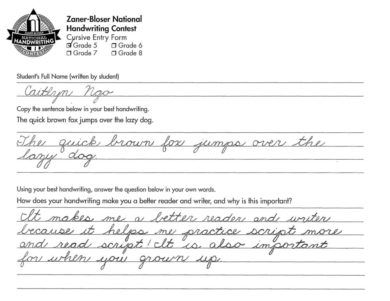 NATIONAL
HANDWRITING
CONTEST
Zaner-Bloser National
Handwriting Contest
Cursive Entry Form
☑ Grade 5 ☐ Grade 6
☐ Grade 7 ☐ Grade 8
Student's Full Name (written by student)
Caitlyn Ngo
Copy the sentence below in your best handwriting.
The quick brown fox jumps over the lazy dog.
The quick brown fox jumps over the
lazy dog.
Using your best handwriting, answer the question below in your own words.
How does your handwriting make you a better reader and writer, and why is this important?
It makes me a better reader and writer
because it helps me practice script more
and read script! It is also important
for when you grown up.